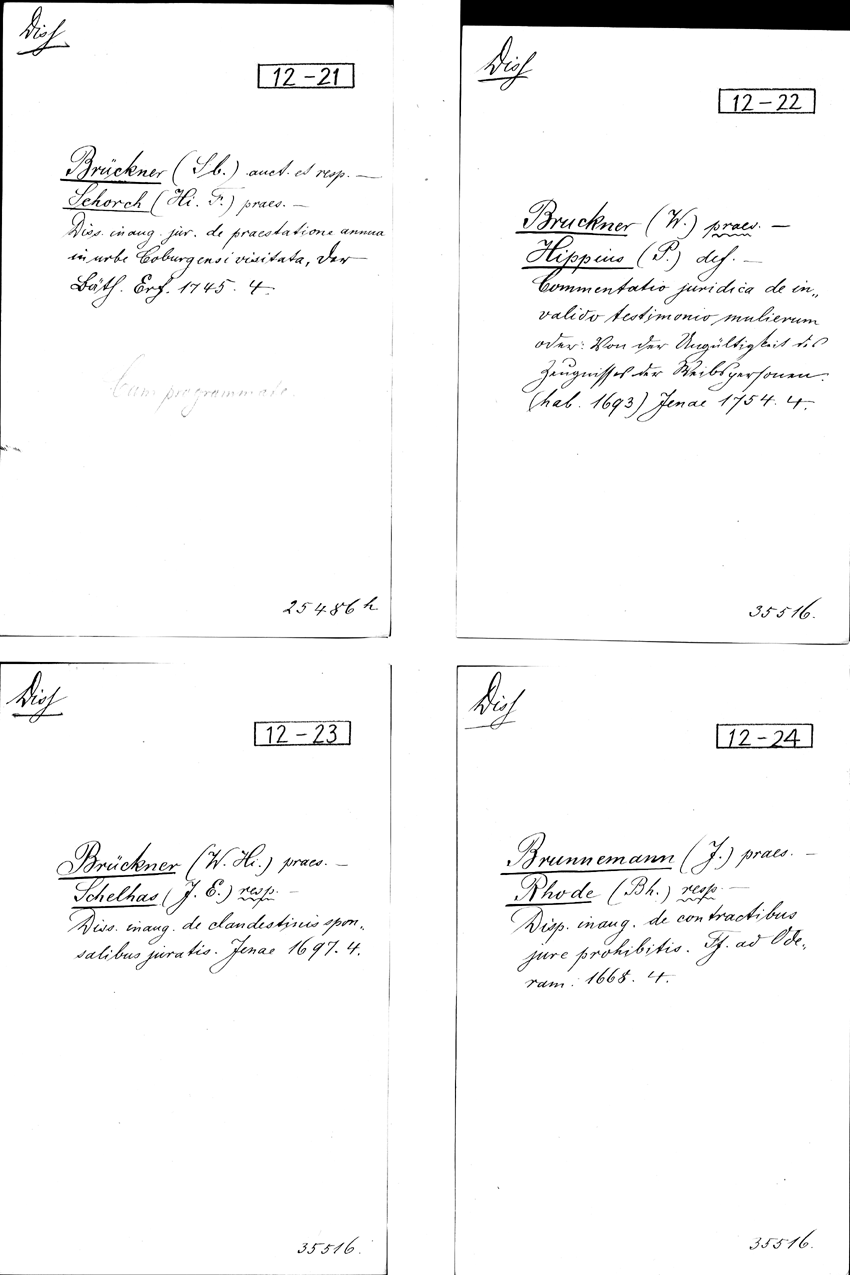 Diss
12-21
Brückner (Sb.) auct. et resp. —
Schorch (Hi. F.) praes. —
Diss. inaug. jur. de praestatione annua
in urbe Coburgensi visitata, der
Erf. 1745. 4.
Cum programmate.
25486 h
Diss
12-22
Bruckner (W.) praes. —
Hippius (P.) def. —
Commentatio juridica de in„
valido testimonio mulierum
oder: Von der Ungültigkeit des
Zeugnisses der Weibspersonen.
(hab. 1693) Jenae 1754. 4.
35516.
Diss
12-23
Brückner (W. Hi.) praes. —
Schelhas (J. E.) resp. —
Diss. inaug. de clandestinis spon„
salibus juratis. Jenae 1697. 4.
35516.
Diss
12-24
Brunnemann (J.) praes. —
Rhode (Bh.) resp. —
Disp. inaug. de contractibus
jure prohibitis. Ff. ad Ode„
ram. 1668. 4.
35516.